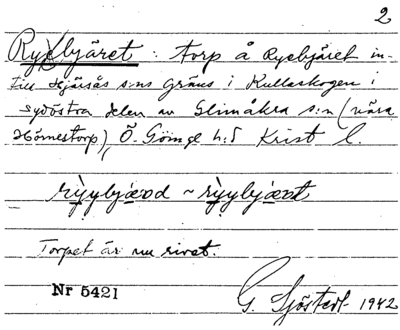 2
Ryebjäret: torp å Ryebjäret in-
till Hjärsås s:ns gräns i Kullaskogen i
sydöstra delen av Glimåkra s:n (nära
Hörnestorp), Ö. Göinge h:d Krist l.
rỳybjæ̀rəd ~ rỳybjæ̀rət
Torpet är nu rivet.
Nr 5421
G. Sjöstedt 1942